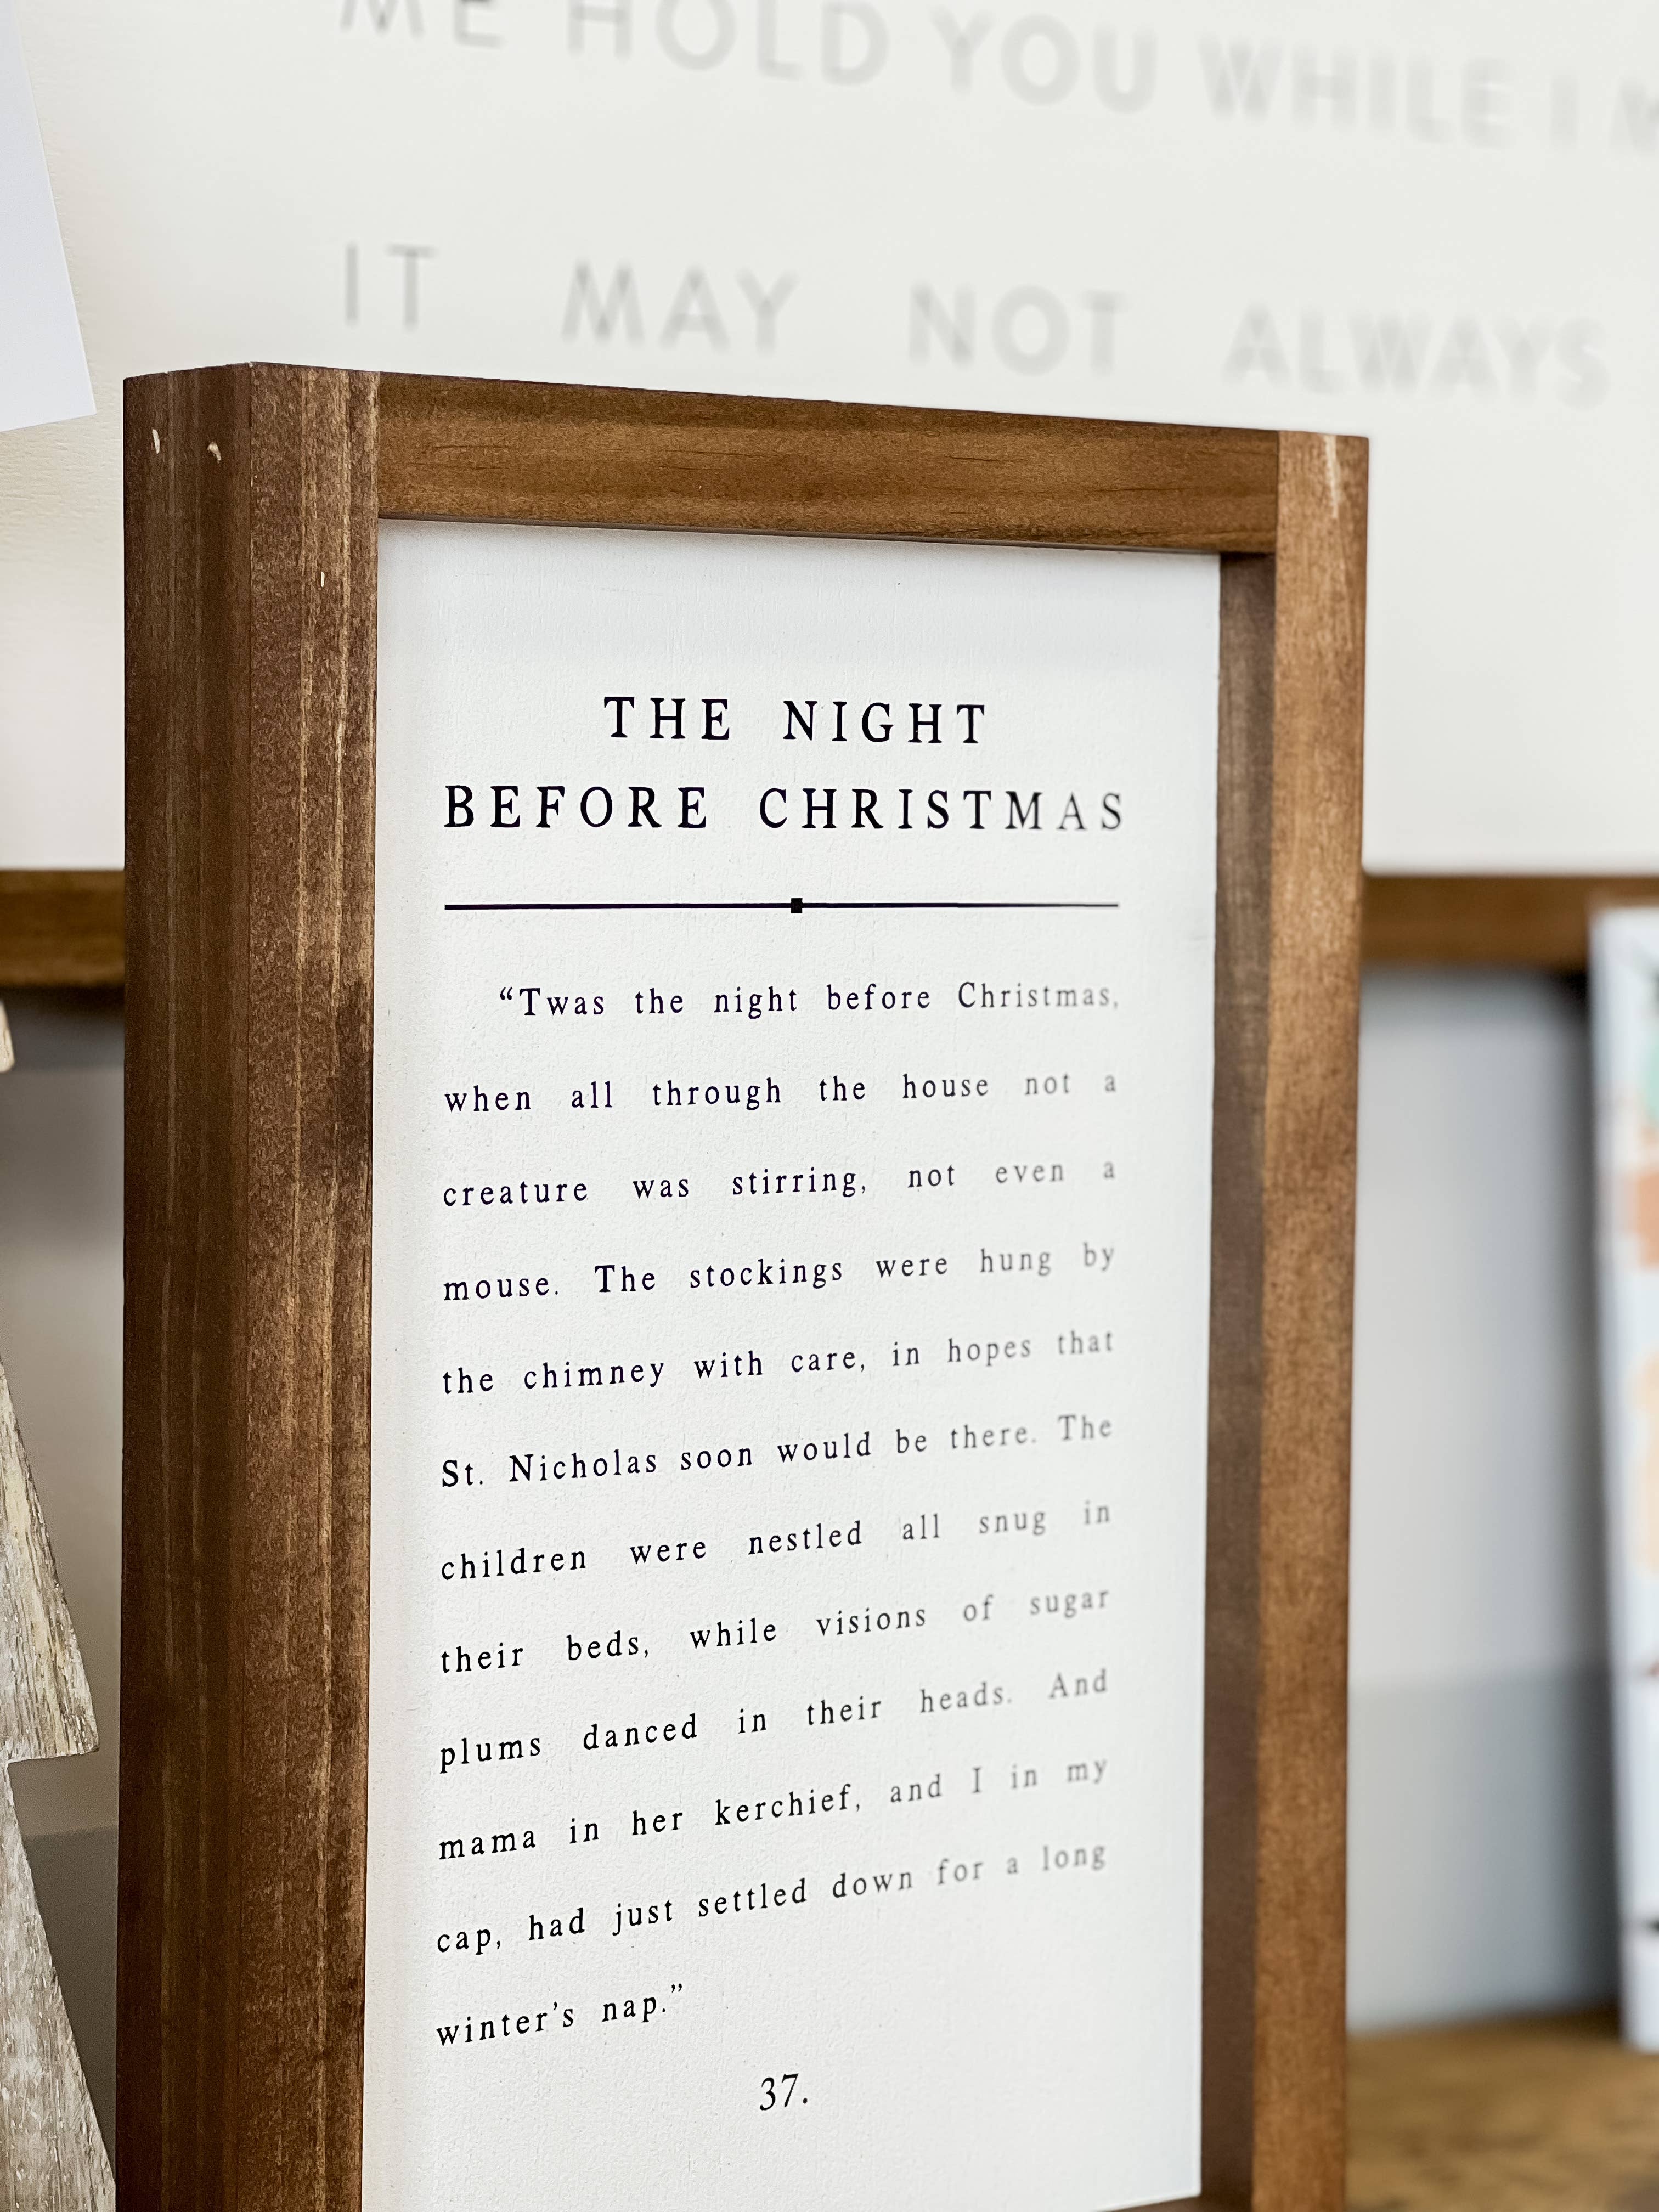 ME HOLD YOU WHILE I
IT MAY NOT ALWAYS
THE NIGHT
BEFORE CHRISTMAS
“Twas the night before Christmas,
when all through the house not a
creature was stirring, not even a
mouse. The stockings were hung by
the chimney with care, in hopes that
St. Nicholas soon would be there. The
children were nestled all snug in
their beds, while visions of sugar
plums danced in their heads. And
mama in her kerchief, and I in my
cap, had just settled down for a long
winter’s nap.”
37.